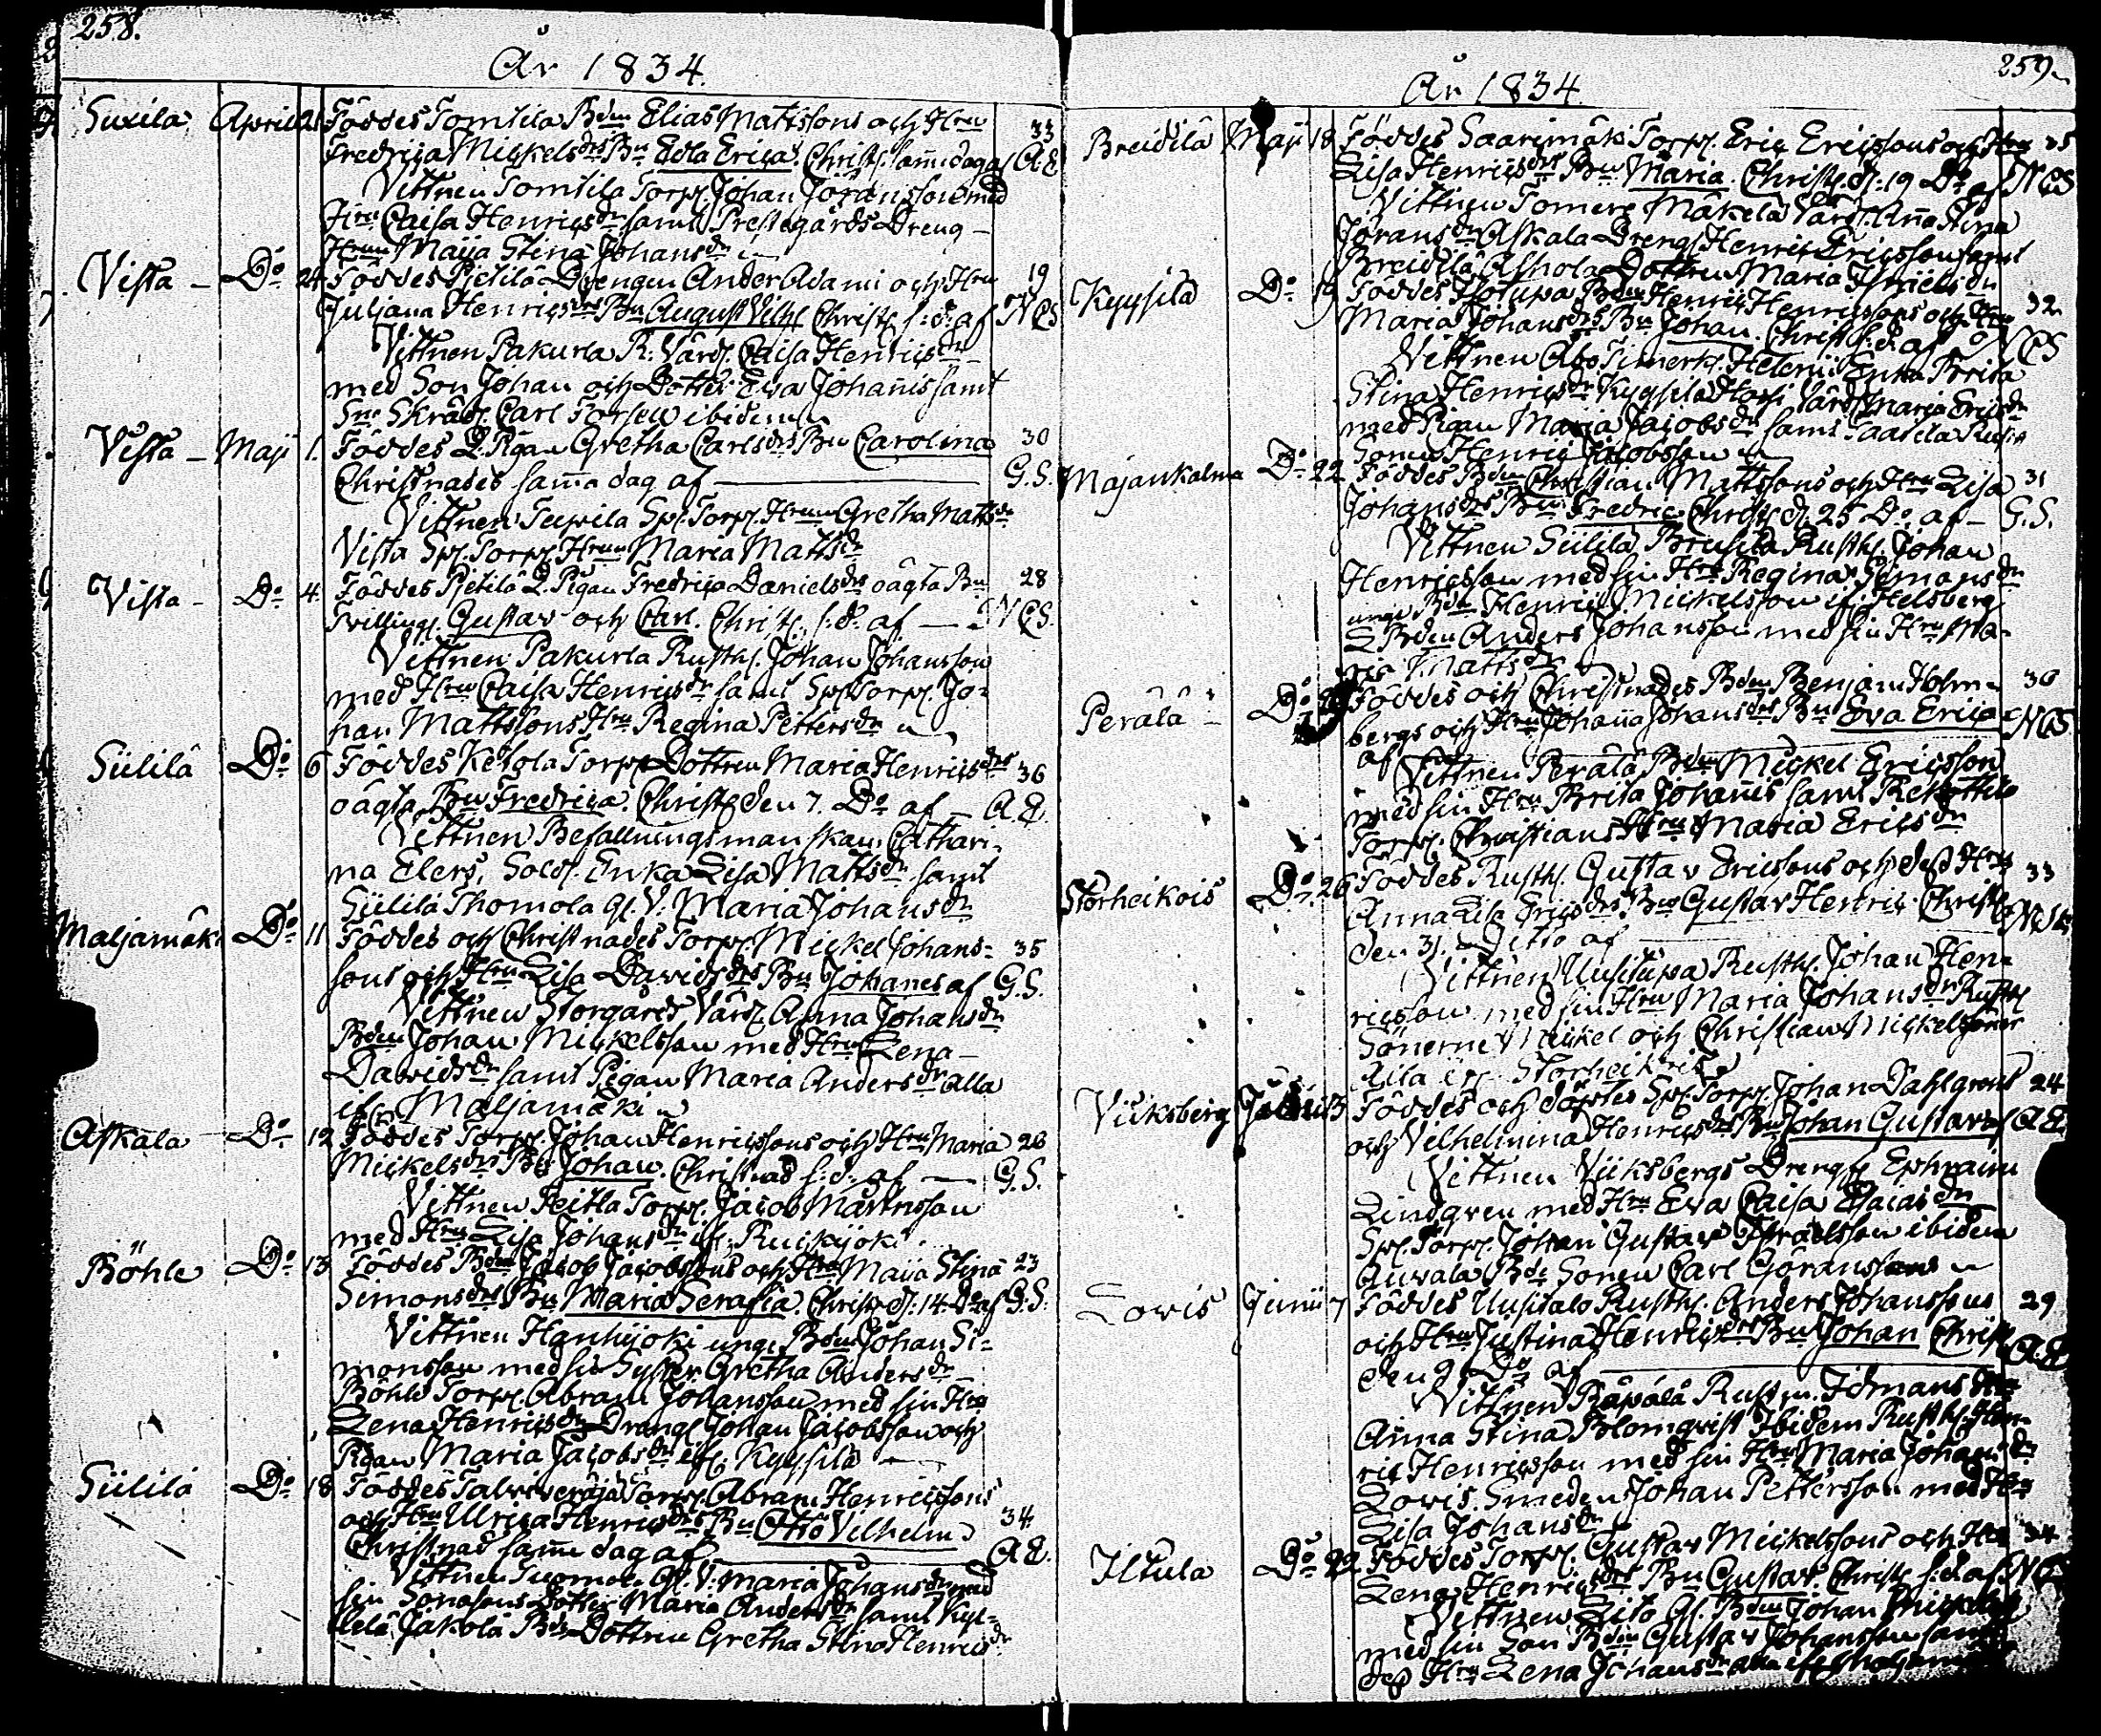 258.
År 1834.
Suxila Aprill 21 Föddes Tomtila Bdn Elias Mattssons och Hru 33
Fredrica Mickelsdrs Bn Edla Erica. Christ. samma dag af A.E.
Vittnen Tomtila Torp. Johan Johanssons med
Hru Caisa Henricsdr samt Prestegårds Dreng
Hrun Maija Stina Johansdr
Vista Do 24 Föddes Pietilä Drengen Ander Adami och Hru 19
Juliana Henricsdrs Bn August Vilh. Christ. s. d. af NCS
Vittnen Pakurla R. Värd. Caisa Henricsdr
med Son Johan och Dotter Eva Johanis samt
Skräd. Carl Forsell ibidem
Vista Maji 1. Föddes L. Pigan Gretha Carlsdrs Bn Carolina 30
Christnades samma dag af G.S.
Vittnen Spl. Torp. Hrun Gretha Mattsdr
Vista Spl. Torp. Hrun Maria Mattsdr
Vista Do 4. Föddes Pietilä L. Pigan Fredrica Danielsdrs oägta Bn 28
Tvilling. Gustav och Carl. Christ. s. d. af NCS.
Vittnen Pakurla Rusth. Johan Johansson
med Hru Caisa Henricsdr samt Spl. Torp. Jo-
han Mattssons Hru Regina Pettersdr
Siililä Do 6 Föddes Ketola Torp. Dottren Maria Henricsdrs 36
oägta Bn Fredrica. Christ. den 7. Do af A.E.
Vittnen Befallningsmanskan Cathari-
na Elers, Sold. Enka Lisa Mattsdr samt
Siililä Thomola Gl. V. Maria Johansdr
Maljamäki Do 11 Föddes och Christnades Torp. Mickel Johans- 35
sons och Hru Lisa Davidsdrs Bn Johanes af G.S.
Vittnen Storgård Värd. Anna Johansdr
Bdn Johan Mickelsson med Hrun Lena
Davidsdr samt Pigan Maria Andersdr alla
ifr. Maljamäki
Askala Do 12 Föddes Torp. Johan Henricssons och Hru Maria 26
Mickelsdrs Bn Johan. Christnad s. d. af G.S.
Vittnen Peitla Torp. Jacob Mårtensson
med Hru Lisa Johansdr if. Ruckijoki.
Böhle Do 13 Föddes Bdn Jacob Jacobssons och Hru Maija Stina 23
Simonsdrs Bn Maria Serafia. Christ. d. 14. Do af G.S.
Vittnen Hanhijoki unge Bdn Johan Si-
monsson med sin Syster Gretha Andersdr
Böhle Torp. Abram Johansson med sin Hru
Lena Henricsdr Dräng. Johan Jacobsson och
Pigan Maria Jacobsdr if. Kyysilä
Siililä Do 18 Föddes Torp. Abram Henricssons
och Hru Ulrica Henricsdrs Bn Otto Vilhelm 34.
Christnad samma dag af A.E.
Vittnen Tuomola Gl. V. Maria Johansdr med
sin Sonasons Dotter Maria Andersdr samt
Jakola Bds Dottren Gretha Stina Henricsdr
259.
År 1834.
Breidilä Maji 18 Föddes Saarimäki Torp. Eric Ericssons och Hru 35
Lisa Henricsdrs Bn Maria. Christ. d. 19 Do af NCS
Vittnen Mäkelä Värd. Anna Stina
Jöransdr Askala Dreng. Henric Ericsson samt
Breidilä Dottren Maria
Kyysilä Do 19 Föddes Bdn Henric Henricssons och Hru 32
Maria Johansdrs Bn Johan. Christ. s. d. af NCS
Vittnen Enka Brita
Stina Henricsdr Kyysilä Värd. Maria Ericsdr
med Pigan Maria Jacobsdr samt
Sonen Henric Jacobsson
Majankalma Do 22 Föddes Bdn Christian Mattssons och Hru Lisa 31
Johansdrs Bn Fredric. Christ. d. 25 Do. af G.S.
Vittnen Siililä Rusth. Johan
Henricsson med sin Hru Regina Simonsdr
unge Bdn Henric Mickelsson if. Helsberg
L Bdn Anders Johansson med sin Hru Ma-
ria Mattsdr
Perälä Do Föddes och Christnades Bdn Benjam Holm- 36
bergs och Hru Johanna Johansdrs Bn Eva Erica NCS
af
Vittnen Perälä Bdn Mickel Ericsson
med sin Hru Brita Johanis samt
Torp. Christians Hru Maria Ericsdr
Storheikois Do. 26 Föddes Rusth. Gustav Ericssons och dess Hru 33
Anna Lisa Ericsdrs Bn Gustav Henric. Christ.
den 31. Ditto af
Vittnen Uusitupa Rusth. Johan Hen-
ricsson med sin Hru Maria Johansdr Rusth.
Sönerne Mickel och Christian Mickelssöner
alla ifr. Storheikois
Viiksberg Junii 5 Föddes och döptes Spl. Torp. Johan Dahlgrens 24
och Vilhelmina Henricsdrs Bn Johan Gustav af A.E.
Vittnen Viiksbergs Dreng. Ephraim
Lindgren med Hru Eva Caisa Esaiasdr
Spl. Torp. Johan Gustav Israelsson ibidem
Auvala Bds Sonen Carl Göransson
Lovis Junii 7 Föddes Uusitalo Rusth. Anders Johanssons 29
och Hru Justina Henricsdrs Bn Johan Christ.
den 9. Do af A.E.
Vittnen Räpälä Hru
Anna Stina Blomqvist Ibidem Rusth. Hen-
ric Henricsson med sin Hru Maria Johansdr
Lovis Smeden Johan Pettersson med Hru
Lisa Johansdr
Iltula Do 22 Föddes Torp. Gustav Mickelssons och Hru 34
Lena Henricsdrs Bn Gustav. Christ. s. d. af NCS
Vittnen Gl. Bdn Johan
med sin Son Bdn Gustav Johansson samt
dess Hru Lena Johansdr alla